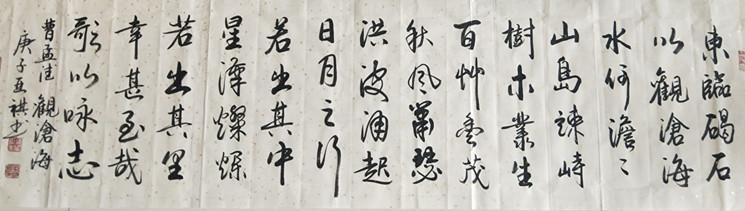 東臨碣石
以觀滄海
水何澹〻
山島竦峙
樹木叢生
百艸豐茂
秋風蕭瑟
洪波涌起
日月之行
若出其中
星漢燦爛
若出其里
幸甚至哉
歌以咏志
曹孟德 觀滄海
庚子 書